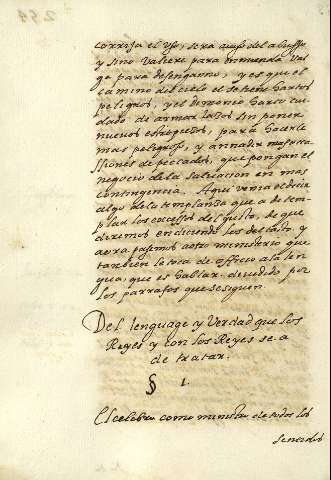 corrija el uso, sera auiso del abusso,
y sino valiere para enmienda val
ga para desengaño, y es que el
camino del cielo el se tiene hartos
peligros, y el demonio harto cui
dado de armar lazos sin poner
nuevos estropieços, para hacerle
mas peligroso, y annadir mas occa
ssiones de peccados, que pongan el
negocio de la saluacion en mas
contingencia. Aqui venia el decir
algo de la templanza que a de tem
plar los excessos del gusto, de que
diremos en diciendo los del tacto, y
aora passemos a otro ministerio que
tambien le toca de officio a la len
gua, que es hablar, devidido por
los parrafos que se siguen.
Del lenguage y Verdad que los
Reyes y con los Reyes se a
de tratar.
§ 1.
El celebro como ministro de todos los
senti